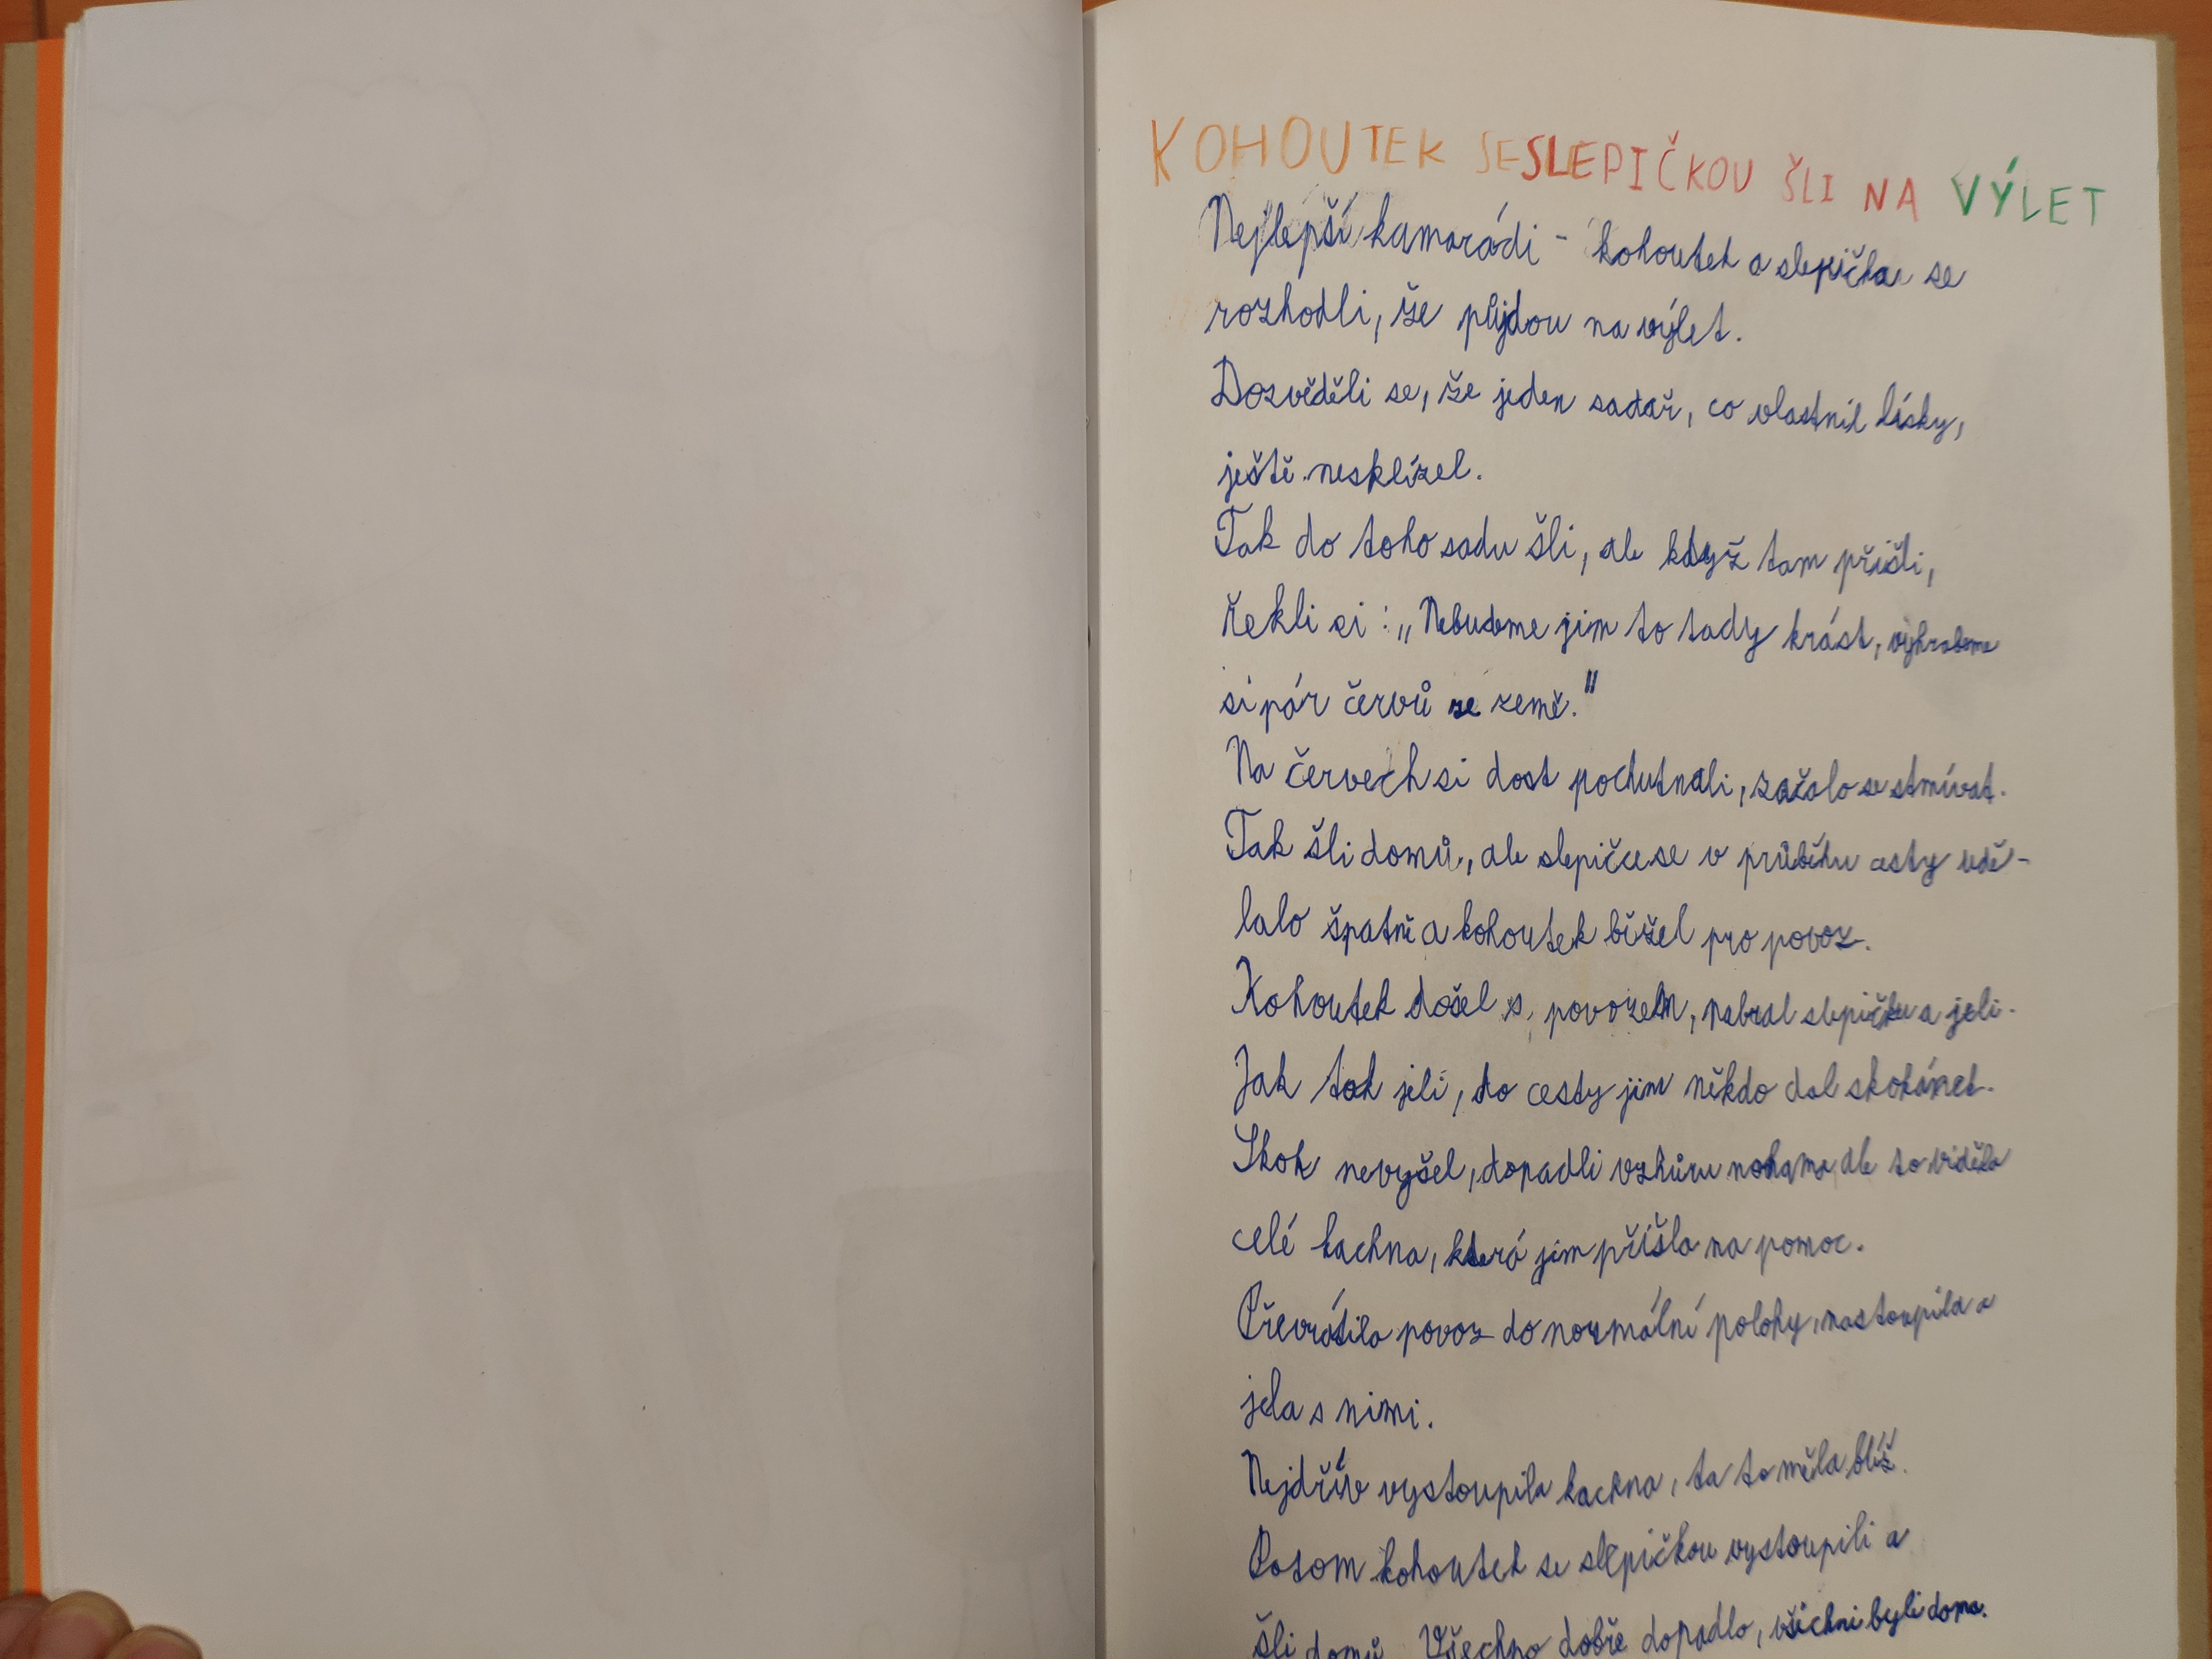 KOHOUTEK SE SLEPIČKOU ŠLI NA VÝLET
Nejlepší kamarádi - kohoutek a slepička se
rozhodli, že půjdou na výlet.
Dozvěděli se, že jeden sadař, co vlastnil lísky,
ještě nesklízel.
Tak do toho sadu šli, ale když tam přišli,
řekli si: „Nebudeme jim to tady krást, vyhrabeme
si pár červů ze země."
Na červech si dost pochutnali, začalo se stmívat.
Tak šli domů, ale slepičce se v průběhu cesty udě-
lalo špatně a kohoutek běžel pro povoz.
Kohoutek došel s povozem, nabral slepičku a jeli.
Jak tak jeli, do cesty jim někdo dal skokánek.
Skok nevyšel, dopadli vzhůru nohama, ale to viděla
celé kachna, která jim přišla na pomoc.
Převrátila povoz do normální polohy, nastoupila a
jela s nimi.
Nejdřív vystoupila kachna, ta to měla blíž.
Potom kohoutek se slepičkou vystoupili a
šli domů. Všechno dobře dopadlo, všichni byli doma.